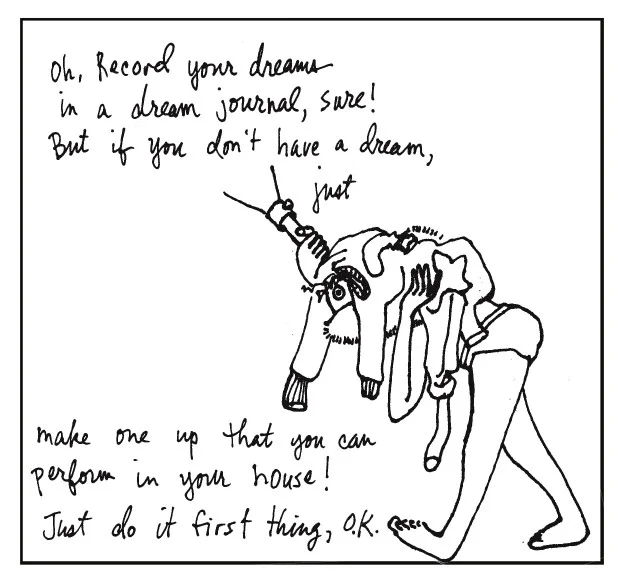 Oh, Record your dreams
in a dream journal, sure!
But if you don't have a dream,
just
make one up that you can
perform in your house!
Just do it first thing, O.K.